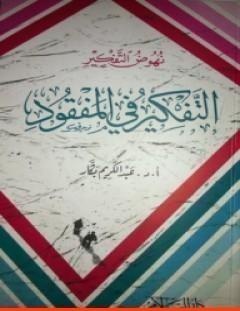 نُهُوضُ التَّفْكِيْر
التَّفْكِيْرُ فِي المَفْقُودِ
أ.د. عَبْد الكَرِيْم بَكَّار